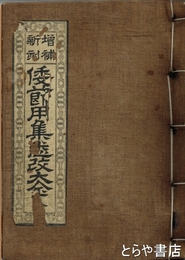 増補
新刻
倭節用集悉改大全
とらや書店